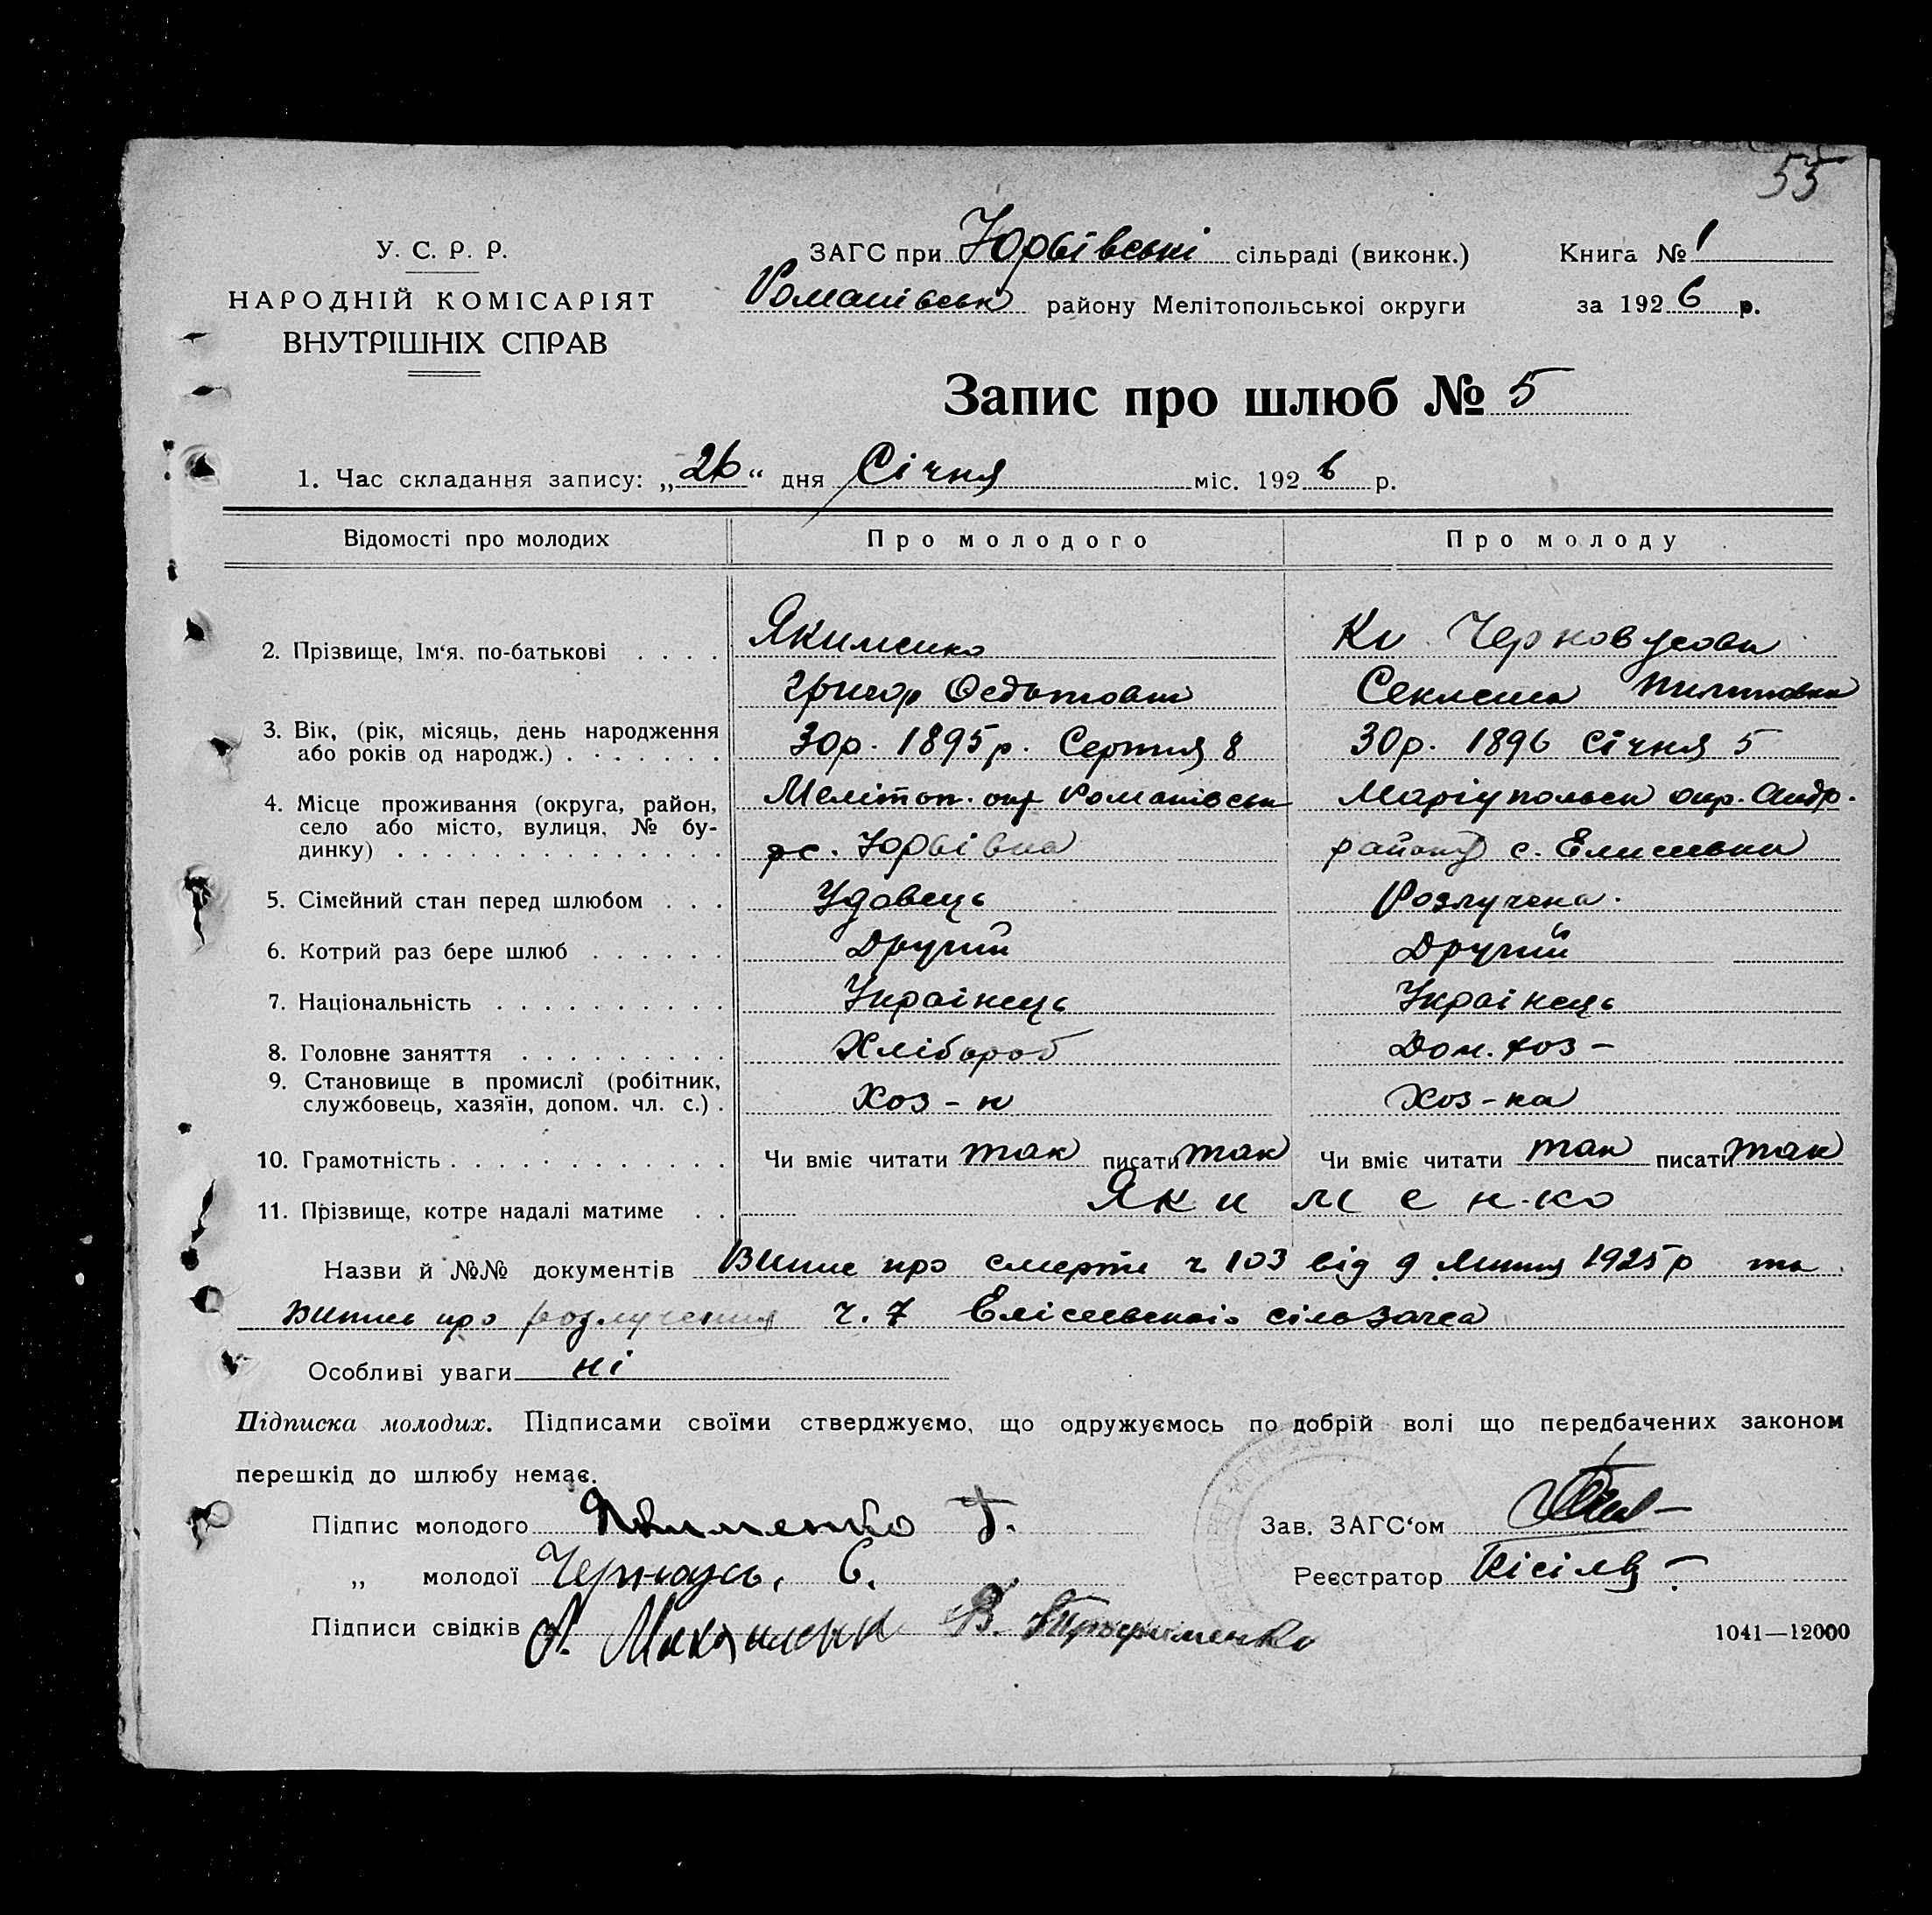 55
У. С. Р. Р.
НАРОДНІЙ КОМІСАРІЯТ
ВНУТРІШНІХ СПРАВ
ЗАГС при Юрьївські сільраді (виконк.)
Романівськ району Мелітопольської округи
Книга № 1
за 1926 р.
Запис про шлюб № 5
1. Час складання запису: „26“ дня Січня міс. 1926 р.
Відомості про молодих Про молодого Про молоду
2. Прізвище, Ім‘я, по-батькові . . . . Якименко Черновусова
Григор Секлета
3. Вік, (рік, місяць, день народження
або років од народж.) . . . . . . . 30р. 1895р. Серпня 8 30р. 1896 Січня 5
4. Місце проживання (округа, район, Меліт оп. окр Романівськ Маріупольск окр. Андр.
село або місто, вулиця, № бу-
динку) . . . . . . . . . . . . . . с. Юрьівка району с. Елисевки
5. Сімейний стан перед шлюбом . . . Удовець Розлучена.
6. Котрий раз бере шлюб . . . . . . Другий Другий
7. Національність . . . . . . . . . . Українець Українець
8. Головне заняття . . . . . . . . . Хлібороб Дом. хоз-
9. Становище в промислі (робітник,
службовець, хазяїн, допом. чл. с.) . Хоз-н Хоз-ка
10. Грамотність . . . . . . . . . . . . Чи вміє читати так писати так Чи вміє читати так писати так
11. Прізвище, котре надалі матиме . . Якименко
Назви й №№ документів Випис про смерть ч 103 від 9 Липня 1925р та
Випис про розлучення ч. 7 сільзагса
Особливі уваги ні
Підписка молодих. Підписами своїми стверджуємо, що одружуємось по добрій волі що передбачених законом
перешкід до шлюбу немає.
Підпис молодого Якименко Г.
Зав. ЗАГС‘ом
„ молодої С.
Реєстратор
Підписи свідків А. В.
1041—12000